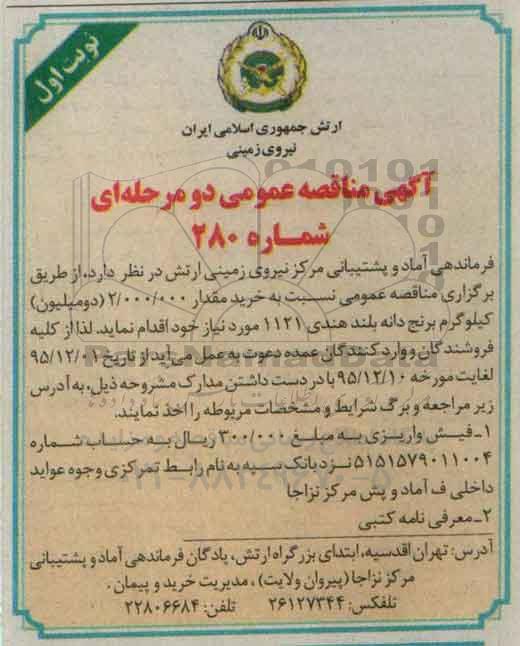 نوبت اول
ارتش جمهوری اسلامی ایران
نیروی زمینی
آگهی مناقصه عمومی دو مرحله‌ای
شماره ۲۸۰
فرماندهی آماد و پشتیبانی مرکز نیروی زمینی ارتش در نظر دارد، از طریق
برگزاری مناقصه عمومی نسبت به خرید مقدار ۲/۰۰۰/۰۰۰ (دومیلیون)
کیلوگرم برنج دانه بلند هندی ۱۱۲۱ مورد نیاز خود اقدام نماید. لذا از کلیه
فروشندگان و وارد کنندگان عمده دعوت به عمل می‌آید از تاریخ ۹۵/۱۲/۰۱
لغایت مورخه ۹۵/۱۲/۱۰ با در دست داشتن مدارک مشروحه ذیل، به آدرس
زیر مراجعه و برگ شرایط و مشخصات مربوطه را اخذ نمایند.
۱ـ فیش واریزی به مبلغ ۳۰۰/۰۰۰ ریال به حساب شماره
۵۱۵۱۵۷۹۰۱۱۰۰۴ نزد بانک سپه به نام رابط تمرکزی وجوه عواید
داخلی ف آماد و پش مرکز نزاجا
۲ـ معرفی نامه کتبی
آدرس: تهران اقدسیه، ابتدای بزرگراه ارتش، پادگان فرماندهی آماد و پشتیبانی
مرکز نزاجا (پیروان ولایت)، مدیریت خرید و پیمان.
تلفکس: ۲۶۱۲۷۳۴۴ تلفن: ۲۲۸۰۶۶۸۴